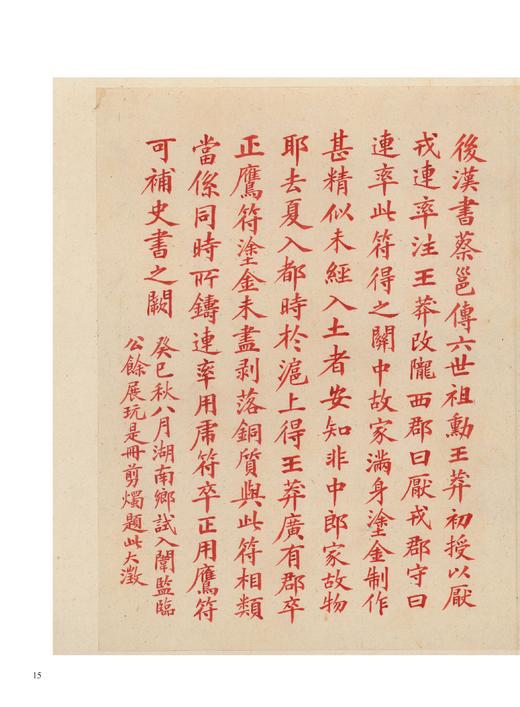 後漢書蔡邕傳六世祖勳王莽初授以厭
戎連率注王莽改隴西郡曰厭戎郡守曰
連率此符得之關中故家滿身塗金制作
甚精似未經入土者安知非中郎家故物
耶去夏入都時於滬上得王莽廣有郡卒
正鷹符塗金未盡剥落銅質與此符相類
當係同時所鑄連率用虎符卒正用鷹符
可補史書之闕
癸巳秋八月湖南鄉試入闈監臨
公餘展玩是冊剪燭題此大澂
15